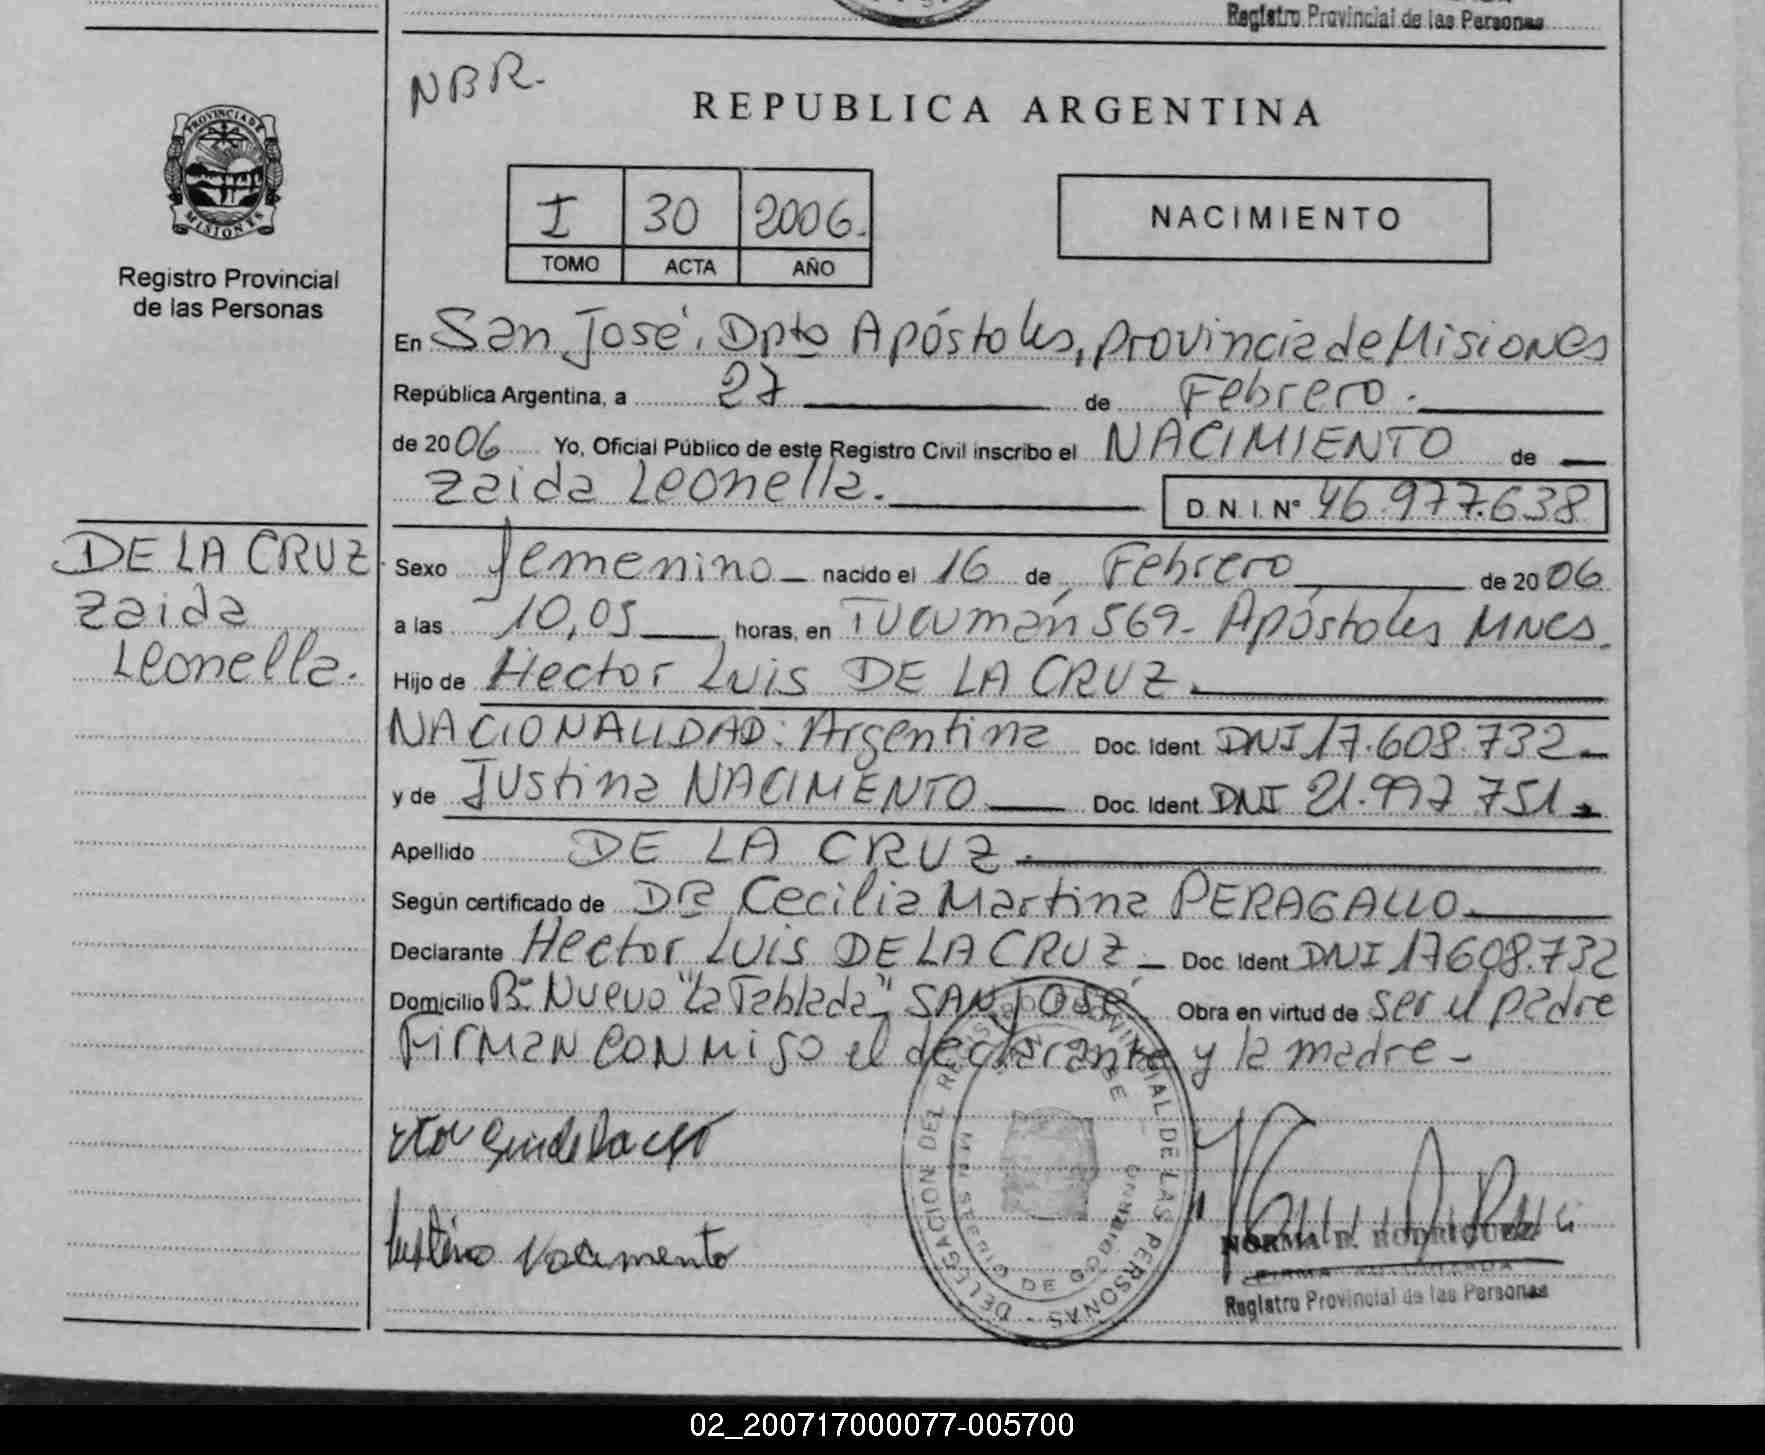 Registro Provincial de las Personas
NBR.
REPUBLICA ARGENTINA
PROVINCIA DE
MISIONES
Registro Provincial
de las Personas
I 30 2006.
TOMO ACTA AÑO
NACIMIENTO
En San José, Dpto Apóstoles, provincia de Misiones
República Argentina, a 27 de Febrero.
de 2006 Yo, Oficial Público de este Registro Civil inscribo el NACIMIENTO de
Zaida Leonella. D.N.I. N° 46.977.638
DE LA CRUZ
Zaida
Leonella.
Sexo femenino nacido el 16 de Febrero de 2006
a las 10,05 horas, en Tucumán 569- Apóstoles MNES.
Hijo de Hector Luis DE LA CRUZ.
NACIONALIDAD: Argentina Doc. Ident. DNI 17.608.732
y de Justina NACIMENTO Doc. Ident. DNI 21.997.751
Apellido DE LA CRUZ
Según certificado de DRa Cecilia Martina PERAGALLO
Declarante Hector Luis DE LA CRUZ Doc. Ident DNI 17608.732
Domicilio B° Nuevo "La Tablada" SAN JOSÉ. Obra en virtud de ser el padre
Firman conmigo el declarante y la madre-
DELEGACION DEL REGISTRO PROVINCIAL DE LAS PERSONAS
MINISTERIO DE GOBIERNO
Justina Nacimento
NORMA B. RODRIGUEZ
FIRMA AUTORIZADA
Registro Provincial de las Personas
02_200717000077-005700